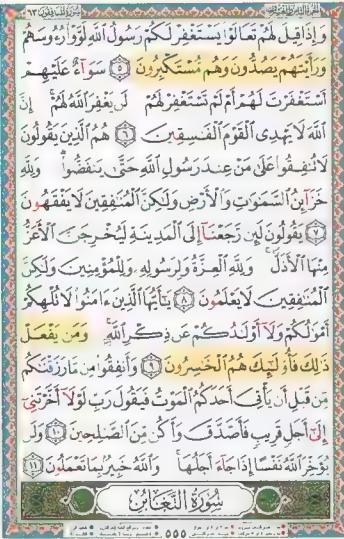 سورة المنافقون ٦٣
وَإِذَا قِيلَ لَهُمْ تَعَالَوْا يَسْتَغْفِرْ لَكُمْ رَسُولُ اللَّهِ لَوَّوْا رُءُوسَهُمْ
وَرَأَيْتَهُمْ يَصُدُّونَ وَهُم مُّسْتَكْبِرُونَ ٥ سَوَاءٌ عَلَيْهِمْ
أَسْتَغْفَرْتَ لَهُمْ أَمْ لَمْ تَسْتَغْفِرْ لَهُمْ لَن يَغْفِرَ اللَّهُ لَهُمْ إِنَّ
اللَّهَ لَا يَهْدِى الْقَوْمَ الْفَٰسِقِينَ ٦ هُمُ الَّذِينَ يَقُولُونَ
لَا تُنفِقُوا عَلَىٰ مَنْ عِندَ رَسُولِ اللَّهِ حَتَّىٰ يَنفَضُّوا وَلِلَّهِ
خَزَائِنُ السَّمَٰوَٰتِ وَالْأَرْضِ وَلَٰكِنَّ الْمُنَٰفِقِينَ لَا يَفْقَهُونَ
٧ يَقُولُونَ لَئِن رَّجَعْنَا إِلَى الْمَدِينَةِ لَيُخْرِجَنَّ الْأَعَزُّ
مِنْهَا الْأَذَلَّ وَلِلَّهِ الْعِزَّةُ وَلِرَسُولِهِ وَلِلْمُؤْمِنِينَ وَلَٰكِنَّ
الْمُنَٰفِقِينَ لَا يَعْلَمُونَ ٨ يَٰأَيُّهَا الَّذِينَ ءَامَنُوا لَا تُلْهِكُمْ
أَمْوَٰلُكُمْ وَلَا أَوْلَٰدُكُمْ عَن ذِكْرِ اللَّهِ وَمَن يَفْعَلْ
ذَٰلِكَ فَأُولَٰئِكَ هُمُ الْخَٰسِرُونَ ٩ وَأَنفِقُوا مِن مَّا رَزَقْنَٰكُم
مِّن قَبْلِ أَن يَأْتِىَ أَحَدَكُمُ الْمَوْتُ فَيَقُولَ رَبِّ لَوْلَا أَخَّرْتَنِى
إِلَىٰ أَجَلٍ قَرِيبٍ فَأَصَّدَّقَ وَأَكُن مِّنَ الصَّٰلِحِينَ ١٠ وَلَن
يُؤَخِّرَ اللَّهُ نَفْسًا إِذَا جَاءَ أَجَلُهَا وَاللَّهُ خَبِيرٌ بِمَا تَعْمَلُونَ ١١
سُورَةُ التَّغَابُنِ
٥٥٥